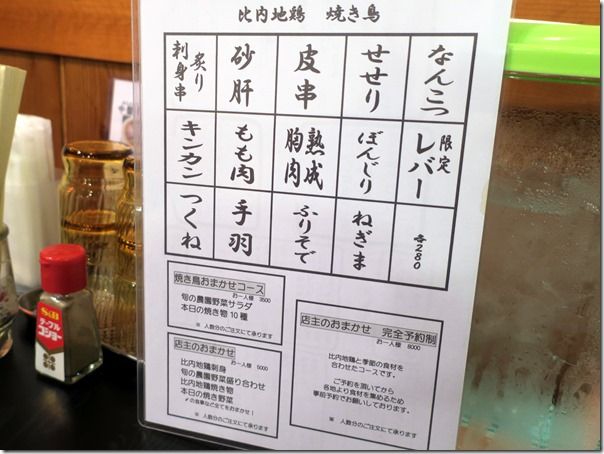 比内地鶏 焼き鳥
なんこつ
せせり
皮串
砂肝
炙り刺身串
限定
レバー
ぼんじり
熟成胸肉
もも肉
キンカン
各280
ねぎま
ふりそで
手羽
つくね
焼き鳥おまかせコース
お一人様 3500
旬の農園野菜サラダ
本日の焼き物10種
※ 人数分のご注文にて承ります
店主のおまかせ
お一人様 5000
比内地鶏刺身
旬の農園野菜盛り合わせ
比内地鶏焼き物
本日の焼き野菜
〆の食事など全ておまかせ!
※ 人数分のご注文にて承ります
店主のおまかせ 完全予約制
お一人様 8000
比内地鶏と季節の食材を
合わせたコースです。
ご予約を頂いてから
各地より食材を集めるため
事前予約でお願いしております。
※ 人数分のご注文にて承ります
S&B
テーブル
コショー